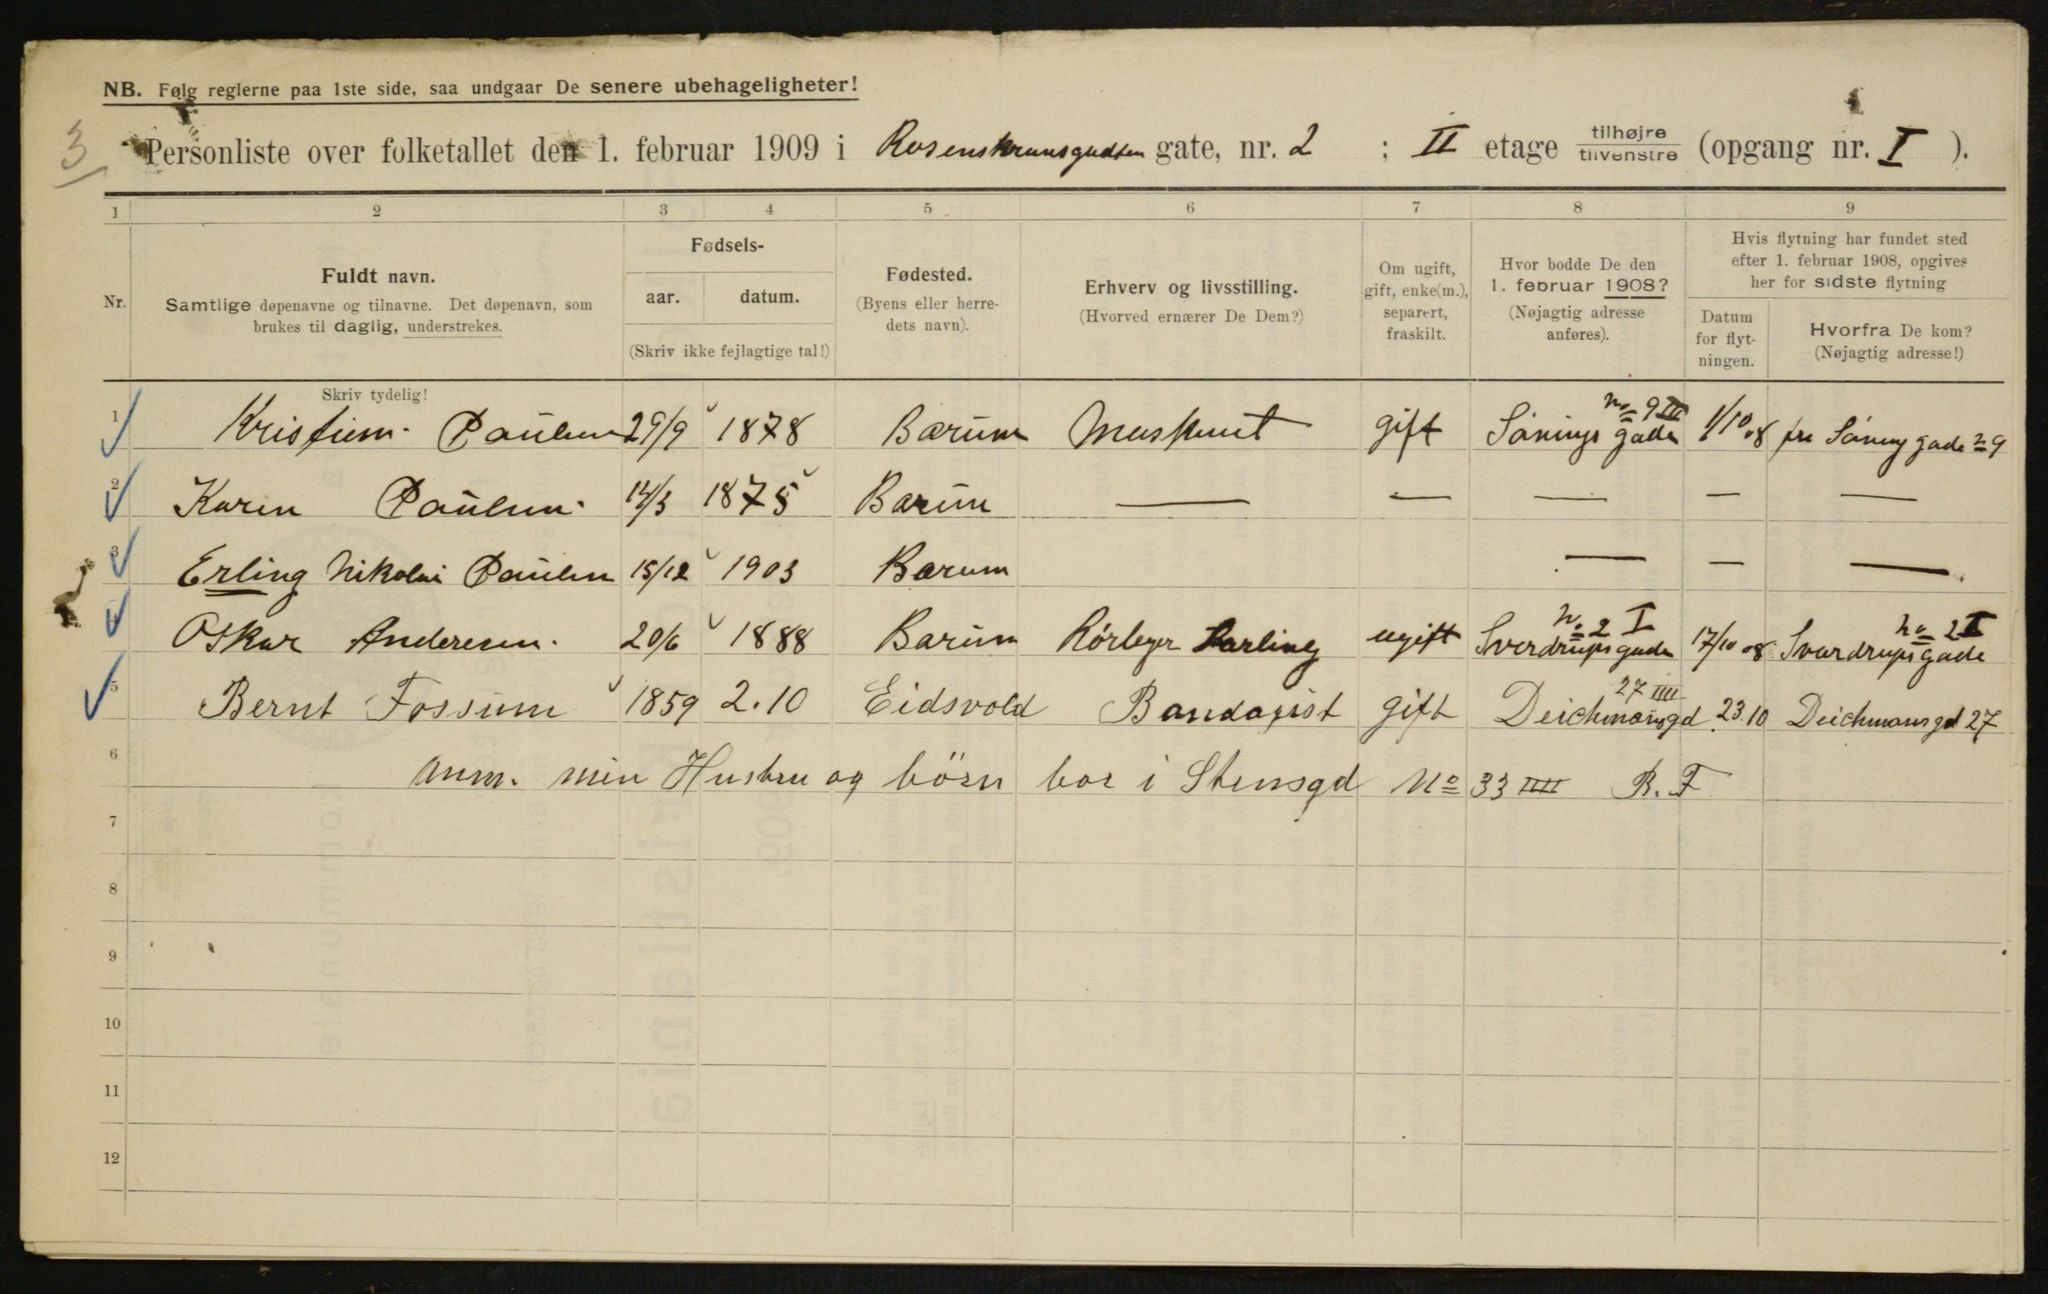 NB. Følg reglerne paa 1ste side, saa undgaar De senere ubehageligheter!
3
Personliste over folketallet den 1. februar 1909 i Rosenskransgadten gate, nr. 2 ; II etage tilhøjre / tilvenstre (opgang nr. I ).
1 2 3 4 5 6 7 8 9
Nr.
Fuldt navn.
Samtlige døpenavne og tilnavne. Det døpenavn, som
brukes til daglig, understrekes.
Fødsels-
aar. datum.
(Skriv ikke fejlagtige tal!)
Fødested.
(Byens eller herre-
dets navn).
Erhverv og livsstilling.
(Hvorved ernærer De Dem?)
Om ugift,
gift, enke(m.),
separert,
fraskilt.
Hvor bodde De den
1. februar 1908?
(Nøjagtig adresse
anføres).
Hvis flytning har fundet sted
efter 1. februar 1908, opgives
her for sidste flytning
Datum
for flyt-
ningen.
Hvorfra De kom?
(Nøjagtig adresse!)
Skriv tydelig!
no 9 III
1 Kristian Paulsen 29/9 1878 Bærum gift gade 1/10 08 fra gade no 9
2 Karen Paulsen 14/3 1875 Bærum — — — — —
3 Erling Nikolai Paulsen 15/12 1903 Bærum — — —
No 2 I no 2 I
4 Oskar Andersen 20/6 1888 Bærum Rørleger Lærling ugift Sverdrups gade 17/10 08 Sverdrups gade
27 IIII
5 Bernt Fossum 1859 2.10 Eidsvold Bandagist gift Deichmansgd 23.10 Deichmansgd 27
6 Anm. min Hustru og börn bor i Stensgd No 33 IIII B. F
7
8
9
10
11
12